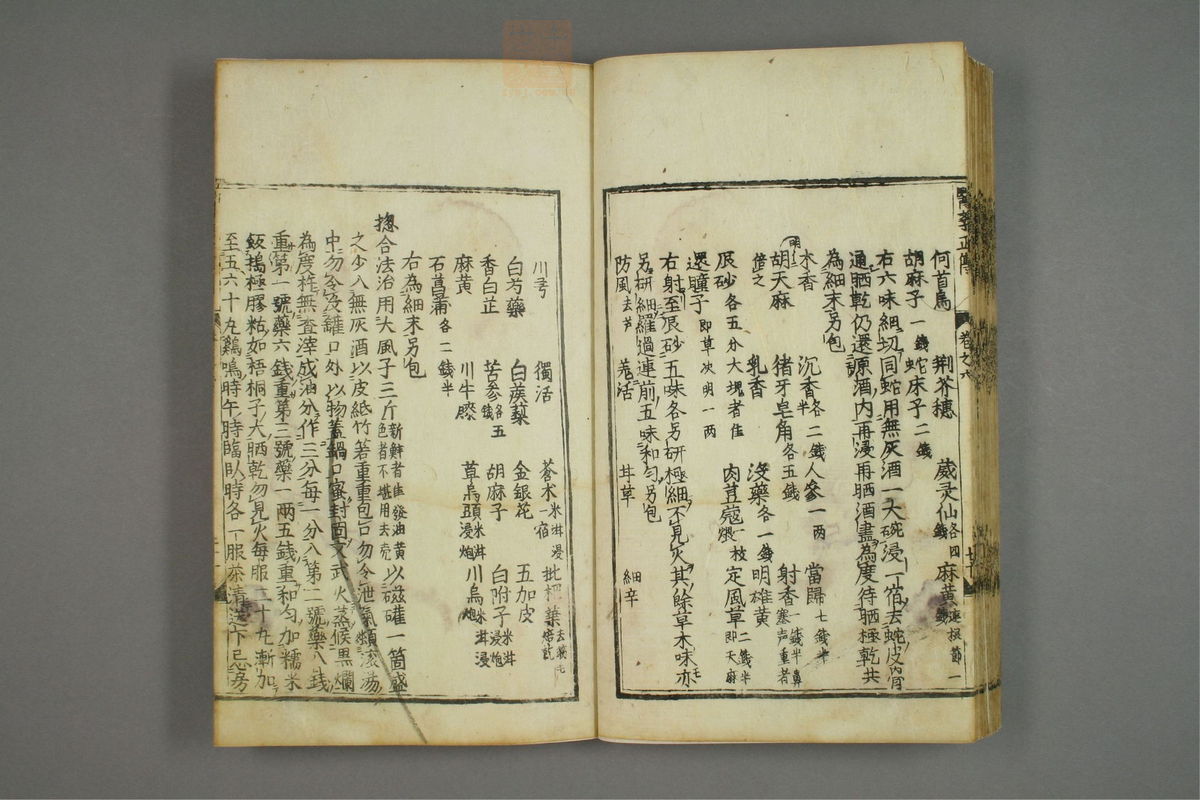 醫學正傳 卷之六
何首烏 荆芥穗 葳灵仙各四錢 麻黄連根節一錢
胡麻子一錢 蛇床子二錢
右六味細切同蛇用無灰酒一大碗浸一宿去蛇皮骨
通晒乾仍還原酒内再浸再晒酒盡為度待晒極乾共
為細末另包
木香 沉香各二錢半 人參一兩 當歸七錢半
胡天麻 猪牙皂角各五錢 射香一錢半鼻塞声重者
倍之 乳香 沒藥各一錢 明雄黄
辰砂各五分大塊者佳 肉荳蔲煨一枚 定風草二錢半即天麻
還瞳子即草决明一两
右射至辰砂五味各另研極細不見火其餘草木味亦
另研細羅過連前五味和勻另包
防風去芦 羗活 甘草 細辛
川芎 獨活 蒼术米泔浸一宿 枇杷葉
白芍藥 白蒺䔧 金銀花 五加皮
香白芷 苦參各五錢 胡麻子 白附子米泔浸炮
麻黄 川牛膝 草烏頭米泔浸炮 川烏米泔浸炮
石菖蒲各二錢半
右為細末另包
揔合法治用大風子三斤新鮮者佳發油黄色者不堪用去壳以磁礶一箇盛
之少入無灰酒以皮紙竹箬重重包口勿令泄氣頓滚湯
中勿令及礶口外以物蓋鍋口蜜封固文武火蒸候黒爛
為度杵無查滓成油分作三分每一分入第二號藥八錢
重第一號藥六錢重第三號藥一兩五錢重和勻加糯米
飯搗極膠粘如梧桐子大晒乾勿見火每服二十九漸加
至五六十九鷄鳴時午時臨臥時各一服茶清送下忌房